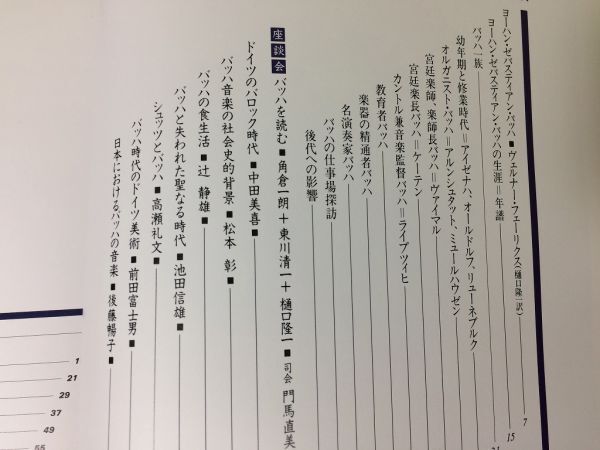 ヨーハン・ゼバスティアン・バッハ■ヴェルナー・フェーリクス(樋口隆一訳) 7
ヨーハン・ゼバスティアン・バッハの生涯=年譜 15
バッハ一族
幼年期と修業時代=アイゼナハ、オールドルフ、リューネブルク
オルガニスト・バッハ=アルンシュタット、ミュールハウゼン
宮廷楽師、楽師長バッハ=ヴァイマル
宮廷楽長バッハ=ケーテン
カントル兼音楽監督バッハ=ライプツィヒ
教育者バッハ
楽器の精通者バッハ
名演奏家バッハ
バッハの仕事場探訪
後代への影響
座談会 バッハを読む■角倉一朗+東川清一+樋口隆一■司会 門馬直美
ドイツのバロック時代■中田美喜■
バッハ音楽の社会史的背景■松本 彰■
バッハの食生活■辻 静雄■
バッハと失われた聖なる時代■池田信雄■
シュッツとバッハ■高瀬礼文■
バッハ時代のドイツ美術■前田富士男■
日本におけるバッハの音楽■後藤暢子■
1
21
29
37
49
55